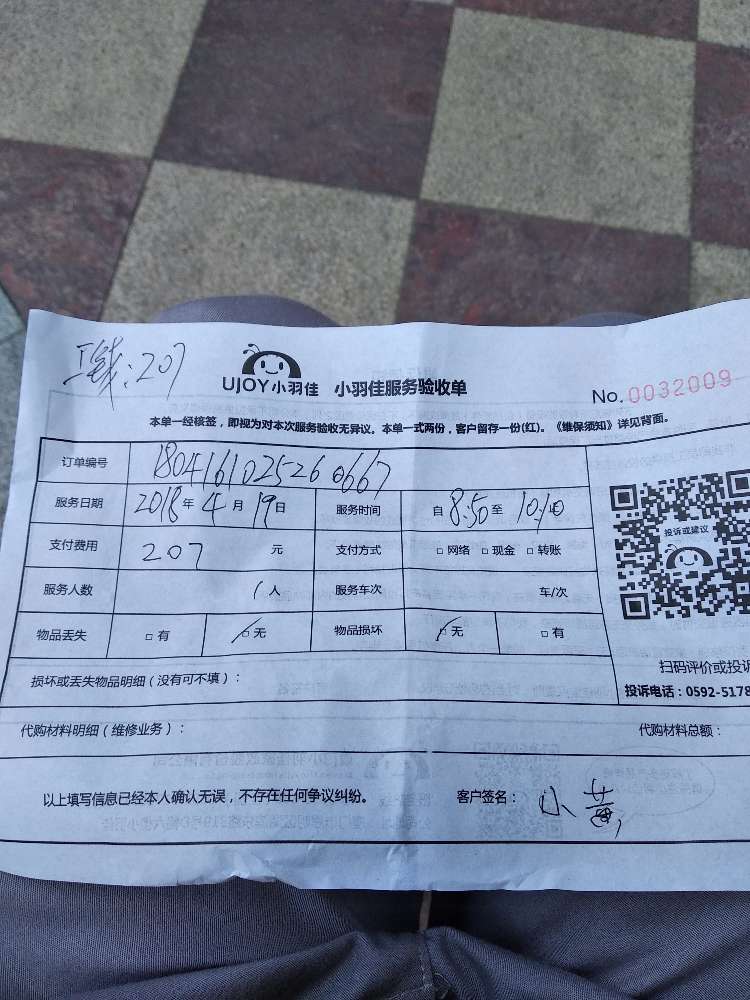 工钱:207
UJOY小羽佳 小羽佳服务验收单
No.0032009
本单一经核签，即视为对本次服务验收无异议。本单一式两份，客户留存一份(红)。《维保须知》详见背面。
订单编号 180416102526 0667
服务日期 2018年4月19日 服务时间 自8:50至10:10
支付费用 207 元 支付方式 □网络 □现金 □转账
投诉或建议
服务人数 1人 服务车次 车/次
物品丢失 □有 □无 物品损坏 □无 □有
扫码评价或投诉
损坏或丢失物品明细（没有可不填）：
投诉电话：0592-5178
代购材料明细（维修业务）： 代购材料总额：
以上填写信息已经本人确认无误，不存在任何争议纠纷。 客户签名：小黄